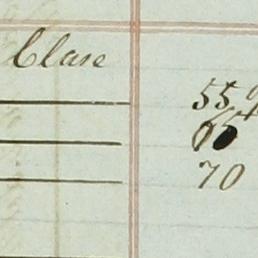 Clase
55
65
70